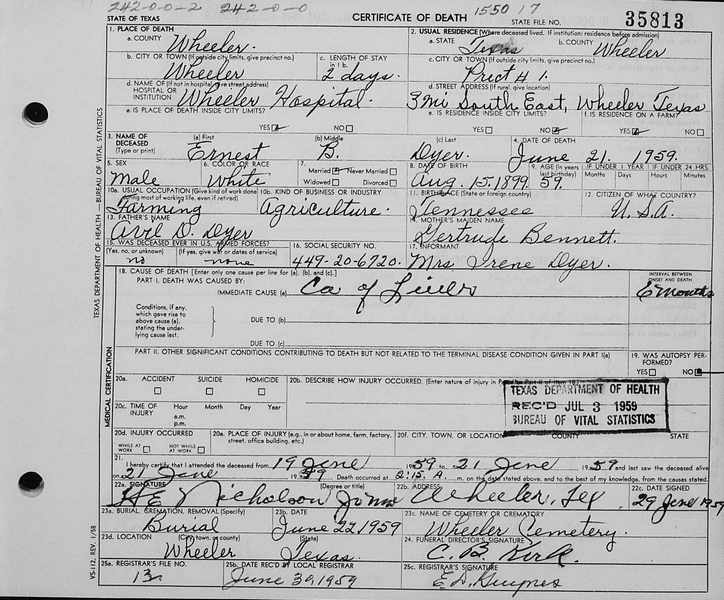 242-0-0-2 242-0-0 1550 17
STATE OF TEXAS CERTIFICATE OF DEATH STATE FILE NO. 35813
TEXAS DEPARTMENT OF HEALTH—BUREAU OF VITAL STATISTICS
1. PLACE OF DEATH 2. USUAL RESIDENCE (Where deceased lived. If institution: residence before admission)
a. COUNTY Wheeler. a. STATE Texas b. COUNTY Wheeler
b. CITY OR TOWN (If outside city limits, give precinct no.) c. LENGTH OF STAY in 1 b. c. CITY OR TOWN (If outside city limits, give precinct no.)
Wheeler 2 days. Prict # 1.
d. NAME OF (If not in hospital, give street address) HOSPITAL OR INSTITUTION d. STREET ADDRESS (If rural, give location)
Wheeler Hospital. 3 mi South East, Wheeler Texas
e. IS PLACE OF DEATH INSIDE CITY LIMITS? e. IS RESIDENCE INSIDE CITY LIMITS? f. IS RESIDENCE ON A FARM?
YES NO YES NO YES NO
3. NAME OF DECEASED (Type or print) (a) First (b) Middle (c) Last 4. DATE OF DEATH
Ernest B. Dyer. June 21, 1959.
5. SEX 6. COLOR OR RACE 7. Married Never Married Widowed Divorced 8. DATE OF BIRTH 9. AGE (In years last birthday) IF UNDER 1 YEAR IF UNDER 24 HRS. Months Days Hours Minutes
Male White Aug. 15. 1899. 59.
10a. USUAL OCCUPATION (Give kind of work done during most of working life, even if retired) 10b. KIND OF BUSINESS OR INDUSTRY 11. BIRTHPLACE (State or foreign country) 12. CITIZEN OF WHAT COUNTRY?
Farming Agriculture. Tennessee U.S.A.
13. FATHER'S NAME 14. MOTHER'S MAIDEN NAME
D. Dyer Gertrude Bennett.
15. WAS DECEASED EVER IN U.S. ARMED FORCES? (If yes, give war or dates of service) 16. SOCIAL SECURITY NO. 17. INFORMANT
no none 449-20-6720. Mrs Irene Dyer.
MEDICAL CERTIFICATION
18. CAUSE OF DEATH [Enter only one cause per line for (a), (b), and (c).] INTERVAL BETWEEN ONSET AND DEATH
PART I. DEATH WAS CAUSED BY:
IMMEDIATE CAUSE (a) Ca of Liver 6 months
Conditions, if any, which gave rise to above cause (a), stating the underlying cause last.
DUE TO (b)
DUE TO (c)
PART II. OTHER SIGNIFICANT CONDITIONS CONTRIBUTING TO DEATH BUT NOT RELATED TO THE TERMINAL DISEASE CONDITION GIVEN IN PART I(a) 19. WAS AUTOPSY PERFORMED?
YES NO
20a. ACCIDENT SUICIDE HOMICIDE 20b. DESCRIBE HOW INJURY OCCURRED. (Enter nature of injury in Part I or Part II of item 18.)
TEXAS DEPARTMENT OF HEALTH
REC'D JUL 3 1959
BUREAU OF VITAL STATISTICS
20c. TIME OF INJURY Hour Month Day Year
a.m.
p.m.
20d. INJURY OCCURRED WHILE AT WORK NOT WHILE AT WORK 20e. PLACE OF INJURY (e.g., in or about home, farm, factory, street, office building, etc.) 20f. CITY, TOWN, OR LOCATION COUNTY STATE
21. I hereby certify that I attended the deceased from 19 June 1959 to 21 June 1959 and last saw the deceased alive
on 21 June 1959 Death occurred at 2:15 A. m. on the date stated above, and to the best of my knowledge, from the causes stated.
22a. SIGNATURE (Degree or title) 22b. ADDRESS 22c. DATE SIGNED
H E Nicholson Wheeler, Tex 29 June 1959
23a. BURIAL, CREMATION, REMOVAL (Specify) 23b. DATE 23c. NAME OF CEMETERY OR CREMATORY
Burial June 22 1959 Wheeler Cemetery.
23d. LOCATION (City, town, or county) (State) 24. FUNERAL DIRECTOR'S SIGNATURE
Wheeler Texas. C. B. Kirk.
25a. REGISTRAR'S FILE NO. 25b. DATE REC'D BY LOCAL REGISTRAR 25c. REGISTRAR'S SIGNATURE
13 June 30, 1959
VS-112, REV. 1/58